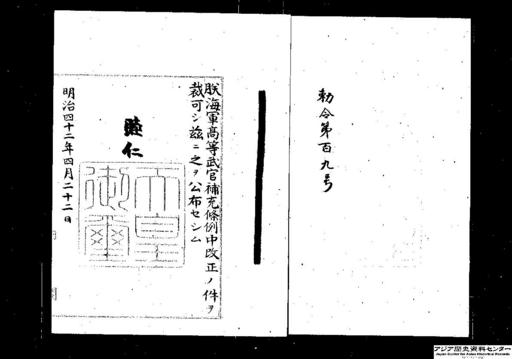 勅令第百九号
朕海軍高等武官補充條例中改正ノ件ヲ
裁可シ玆ニ之ヲ公布セシム
睦仁
天皇
御璽
明治四十二年四月二十二日
アジア歴史資料センター
Japan Center for Asian Historical Records